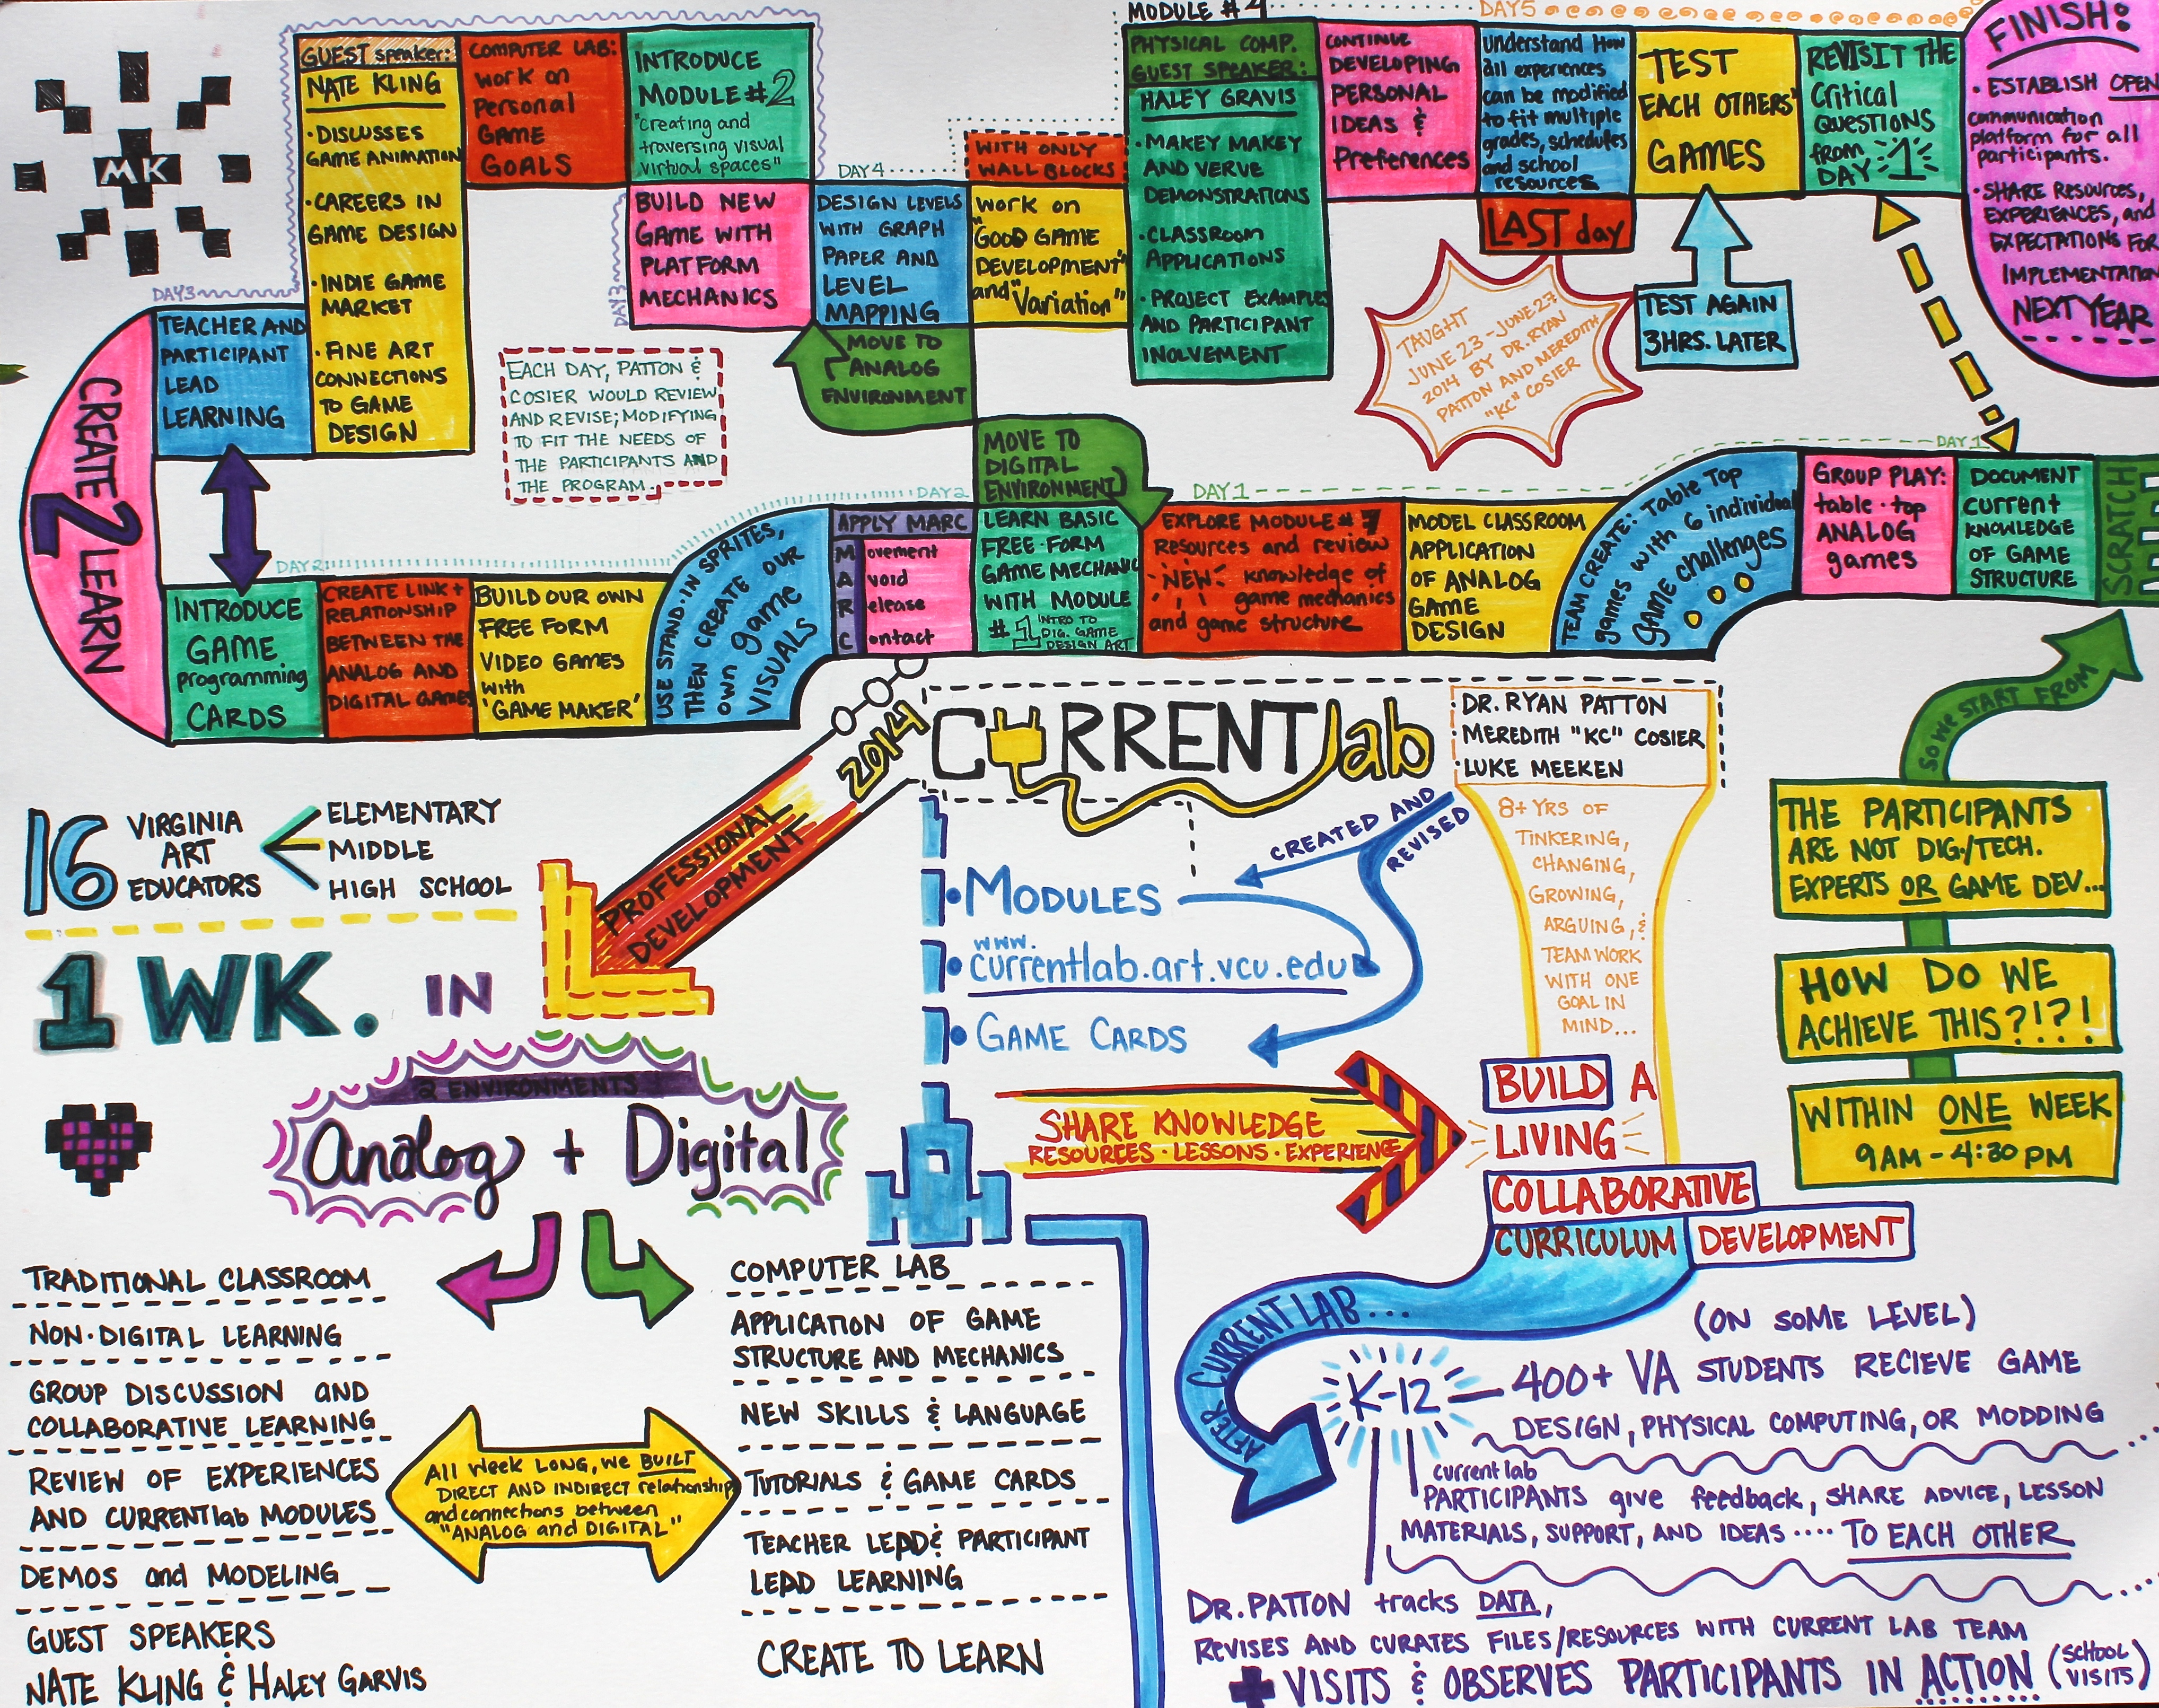 MODULE #4
DAY5
FINISH:
• ESTABLISH OPEN
communication
platform for all
participants.
• SHARE RESOURCES,
EXPERIENCES, and
EXPECTATIONS FOR
IMPLEMENTATION
NEXT YEAR
MK
GUEST speaker:
NATE KLING
• DISCUSSES
GAME ANIMATION
• CAREERS IN
GAME DESIGN
• INDIE GAME
MARKET
• FINE ART
CONNECTIONS
TO GAME
DESIGN
COMPUTER LAB:
work on
Personal
GAME
GOALS
INTRODUCE
MODULE #2
"creating and
traversing visual
virtual spaces"
DAY3
BUILD NEW
GAME WITH
PLATFORM
MECHANICS
DAY4
DESIGN LEVELS
WITH GRAPH
PAPER AND
LEVEL
MAPPING
WITH ONLY
WALL BLOCKS
WORK on
"GOOD GAME
DEVELOPMENT"
and "Variation"
PHYSICAL COMP.
GUEST SPEAKER:
HALEY GRAVIS
• MAKEY MAKEY
AND VERVE
DEMONSTRATIONS
• CLASSROOM
APPLICATIONS
• PROJECT EXAMPLES
AND PARTICIPANT
INOLVEMENT
CONTINUE
DEVELOPING
PERSONAL
IDEAS &
Preferences
Understand How
all experiences
can be modified
to fit multiple
grades, schedules
and school
resources
LAST day
TEST
EACH OTHERS'
GAMES
TEST AGAIN
3HRS. LATER
REVISIT THE
Critical
QUESTIONS
from
DAY 1
TAUGHT
JUNE 23 - JUNE 27
2014 BY DR. RYAN
PATTON AND MEREDITH
"KC" COSIER
DAY3
TEACHER AND
PARTICIPANT
LEAD
LEARNING
CREATE 2 LEARN
EACH DAY, PATTON &
COSIER WOULD REVIEW
AND REVISE; MODIFYING
TO FIT THE NEEDS OF
THE PARTICIPANTS AND
THE PROGRAM.
MOVE TO
ANALOG
ENVIRONMENT
MOVE TO
DIGITAL
ENVIRONMENT
DAY2
INTRODUCE
GAME
programming
CARDS
CREATE LINK +
RELATIONSHIP
BETWEEN THE
ANALOG AND
DIGITAL GAMES
BUILD OUR OWN
FREE FORM
VIDEO GAMES
with
'GAME MAKER'
USE STAND-IN SPRITES,
THEN CREATE OUR
own game
VISUALS
DAY2
APPLY MARC
Movement
Avoid
Release
Contact
LEARN BASIC
FREE-FORM
GAME MECHANIC
WITH MODULE
#1 INTRO TO
DIG. GAME
DESIGN ART
DAY1
EXPLORE MODULE #1
Resources and review
"NEW" knowledge of
game mechanics
and game structure
MODEL CLASSROOM
APPLICATION
OF ANALOG
GAME
DESIGN
TEAM CREATE: Table Top
games with 6 individual
game challenges
DAY1
GROUP PLAY:
table-top
ANALOG
games
DOCUMENT
current
KNOWLEDGE
OF GAME
STRUCTURE
SCRATCH
SO WE START FROM
THE PARTICIPANTS
ARE NOT DIG./TECH.
EXPERTS OR GAME DEV...
HOW DO WE
ACHIEVE THIS?!?!
WITHIN ONE WEEK
9AM - 4:30 PM
16
VIRGINIA
ART
EDUCATORS
ELEMENTARY
MIDDLE
HIGH SCHOOL
1 WK. IN
PROFESSIONAL
DEVELOPMENT
2014
CURRENTlab
DR. RYAN PATTON
MEREDITH "KC" COSIER
LUKE MEEKEN
8+ YRS OF
TINKERING,
CHANGING,
GROWING,
ARGUING, &
TEAMWORK
WITH ONE
GOAL IN
MIND...
CREATED AND
REVISED
• MODULES
www.
• currentlab.art.vcu.edu
• GAME CARDS
SHARE KNOWLEDGE
RESOURCES • LESSONS • EXPERIENCE
BUILD A
LIVING
COLLABORATIVE
CURRICULUM DEVELOPMENT
2 ENVIRONMENTS
Analog + Digital
TRADITIONAL CLASSROOM
NON-DIGITAL LEARNING
GROUP DISCUSSION AND
COLLABORATIVE LEARNING
REVIEW OF EXPERIENCES
AND CURRENTlab MODULES
DEMOS and MODELING
GUEST SPEAKERS
NATE KLING & HALEY GARVIS
All Week LONG, we BUILT
DIRECT AND INDIRECT relationships
and connections between
"ANALOG and DIGITAL"
COMPUTER LAB
APPLICATION OF GAME
STRUCTURE AND MECHANICS
NEW SKILLS & LANGUAGE
TUTORIALS & GAME CARDS
TEACHER LEAD & PARTICIPANT
LEAD LEARNING
CREATE TO LEARN
AFTER CURRENT LAB...
(ON SOME LEVEL)
K-12 — 400+ VA STUDENTS RECIEVE GAME
DESIGN, PHYSICAL COMPUTING, OR MODDING
current lab
PARTICIPANTS give feedback, SHARE ADVICE, LESSON
MATERIALS, SUPPORT, AND IDEAS .... TO EACH OTHER
DR. PATTON tracks DATA,
REVISES AND CURATES FILES/RESOURCES WITH CURRENT LAB TEAM
+ VISITS & OBSERVES PARTICIPANTS IN ACTION (SCHOOL
VISITS)